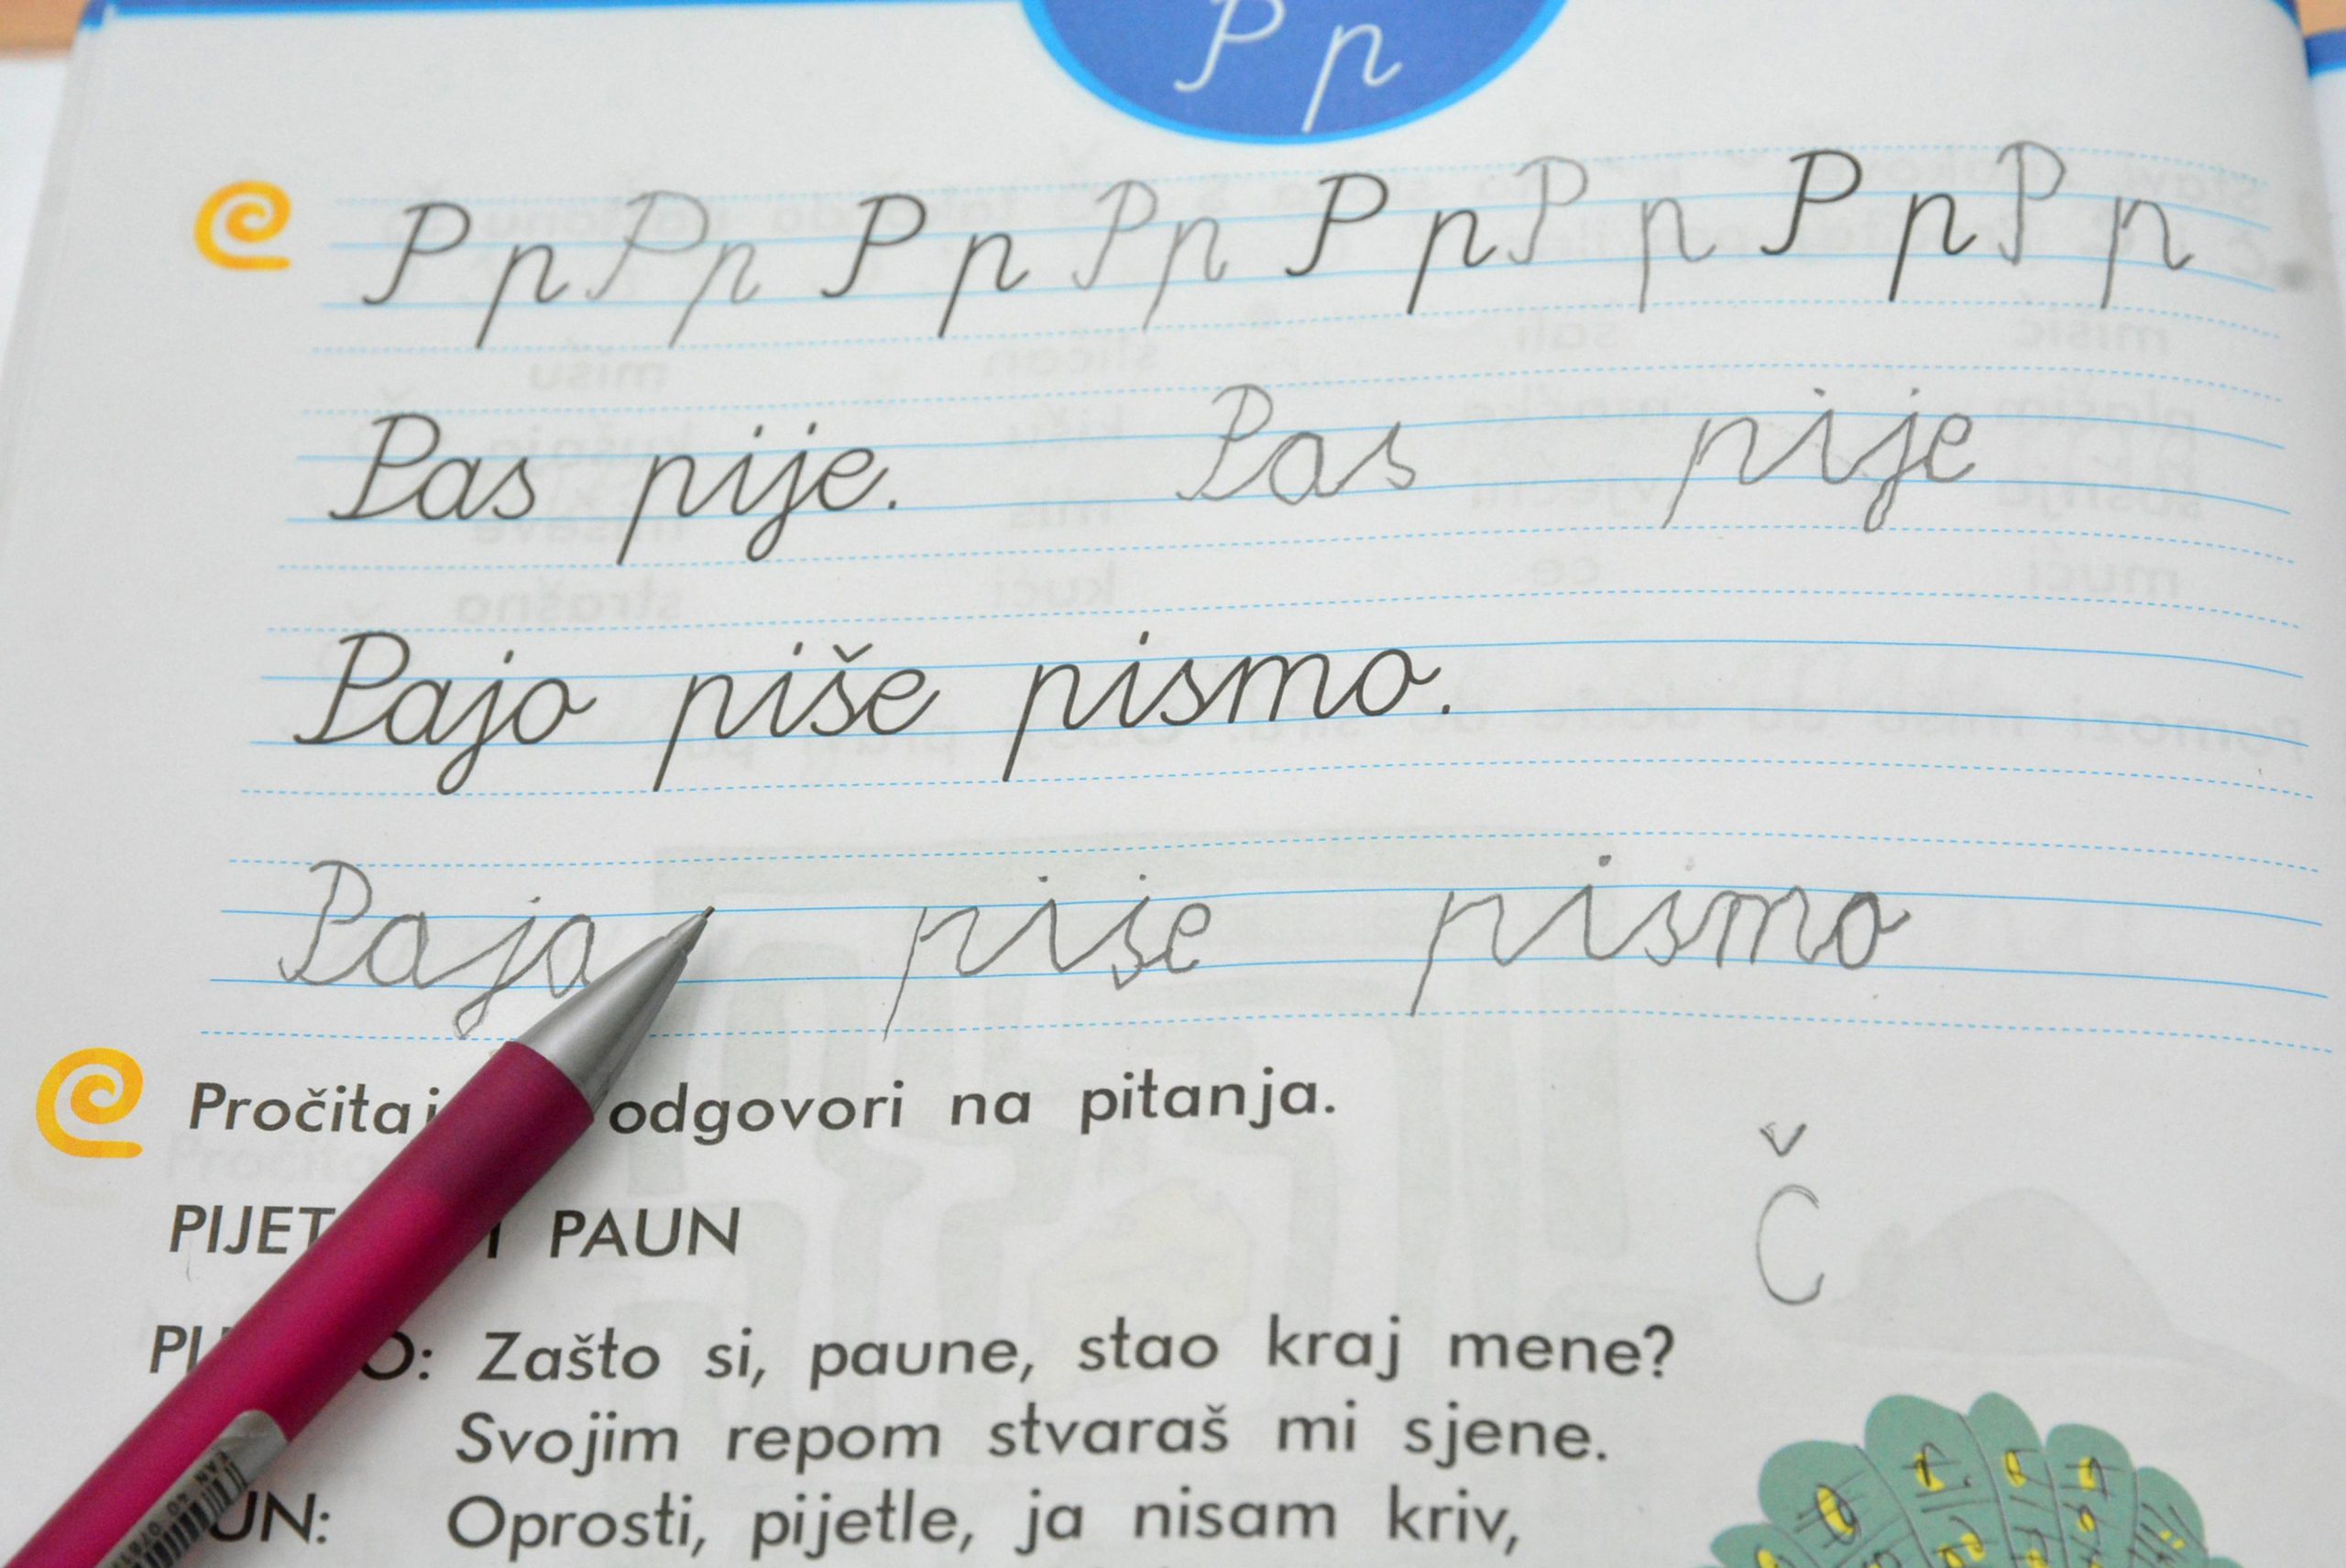 P p
P p P p P p P p P p P p P p P p
Pas pije. Pas pije
Pajo piše pismo.
Pajo piše pismo
Pročitaj odgovori na pitanja.
Č
PAUN
Zašto si, paune, stao kraj mene?
Svojim repom stvaraš mi sjene.
Oprosti, pijetle, ja nisam kriv,